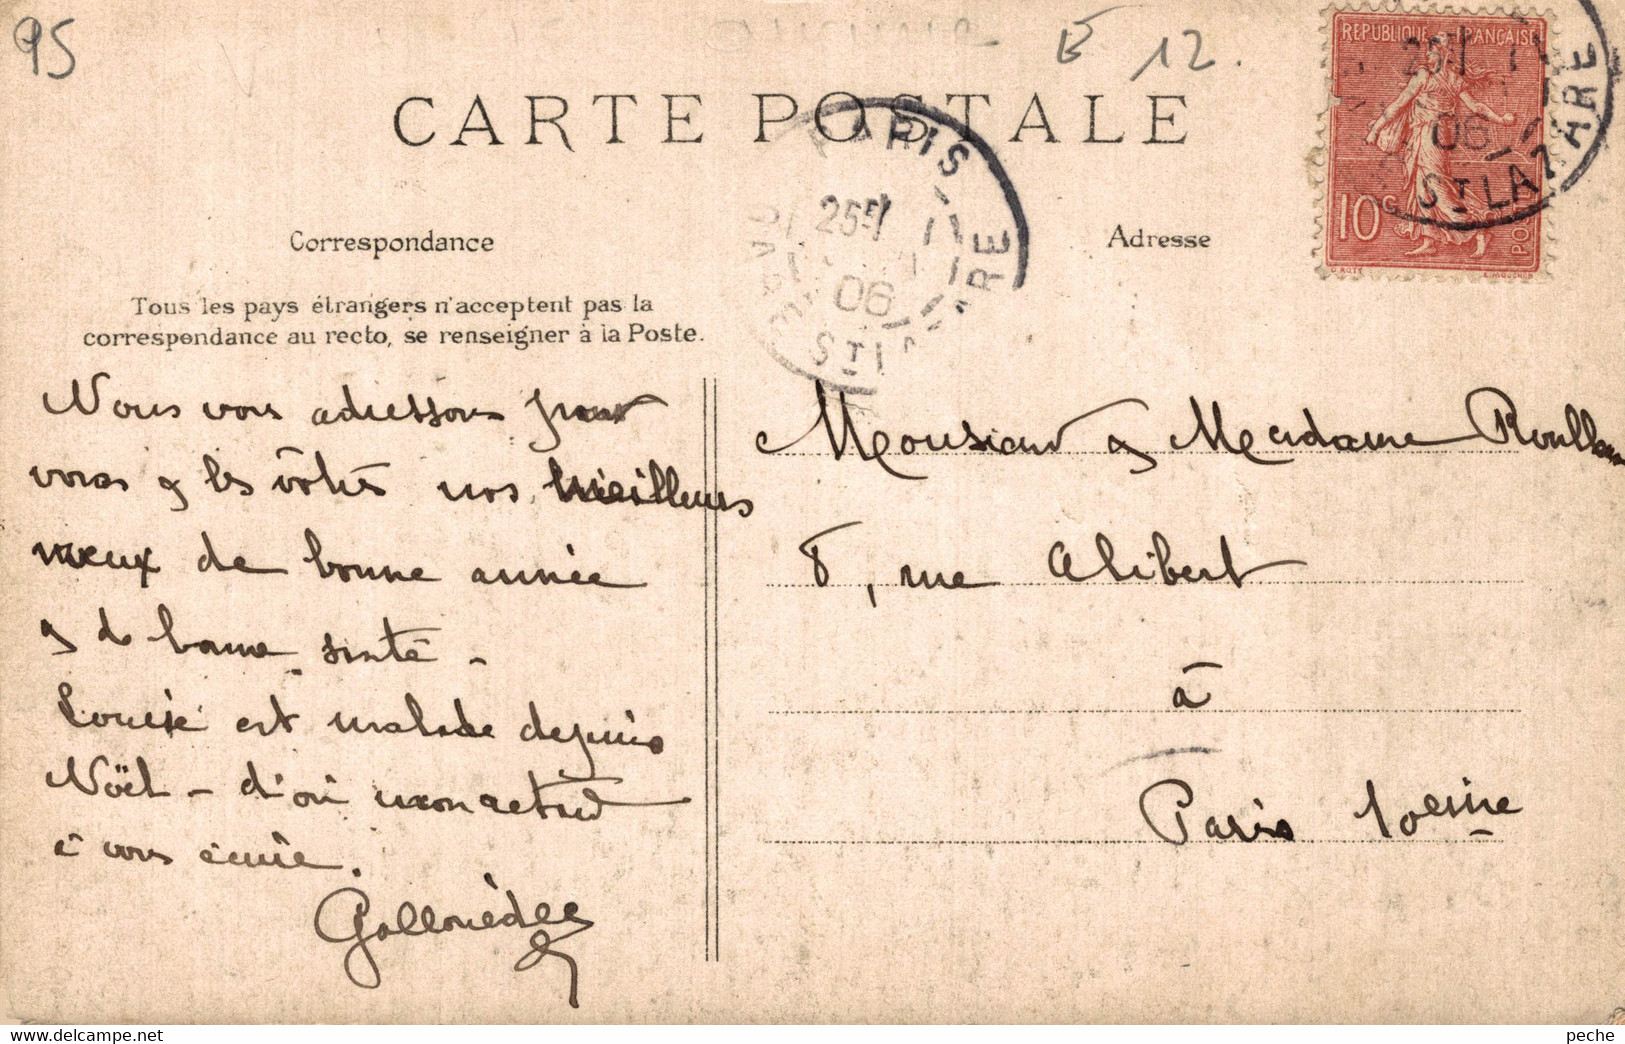 95
E 12.
CARTE POSTALE
REPUBLIQUE FRANÇAISE
10 c
POSTES
PARIS
25
06
ST LAZARE
PARIS
25
06
ST L ARE
Correspondance
Adresse
Tous les pays étrangers n'acceptent pas la
correspondance au recto, se renseigner à la Poste.
Nous vous adressons pour
vous & les vôtres nos meilleurs
vœux de bonne année
& de bonne santé -
Louise est malade depuis
Noël - d'où mon retard
à vous écrire.
Monsieur & Madame
8, rue Alibert
à
Paris 10eme
peche